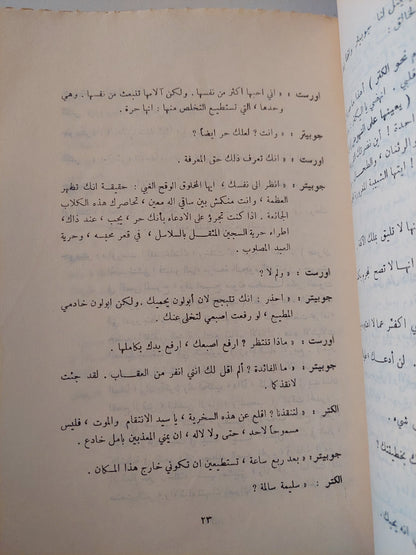 اورست : « اني احبها أكثر من نفسها . ولكن آلامها تنبعث من نفسها . وهي
وحدها ، التي تستطيع التخلص منها : انها حرة .
جوبيتر : « وانت ? لعلك حر ايضاً ?
اورست : « انك تعرف ذلك حق المعرفة .
جوبيتر : « انظر الى نفسك ، ايها المخلوق الوقح الغبي : حقيقة انك تظهر
العظمة ، وانت منكمش بين ساقي اله معين ، تحاصرك هذه الكلاب
الجائعة . اذا كنت تجرؤ على الادعاء بأنك حر ، يجب ، عند ذاك ،
اطراء حرية السجين المثقل بالسلاسل ، في قعر محبسه ، وحرية
العبد المصلوب .
اورست : « ولم لا ?
جوبيتر : « احذر : انك تتبجح لان أبولون يحميك . ولكن ابولون خادمي
المطيع ، لو رفعت إصبعي لتخلى عنك .
اورست : « ماذا تنتظر ? ارفع اصبعك ، ارفع يدك بكاملها .
جوبيتر : « ما الفائدة ? ألم اقل لك انني انفر من العقاب . لقد جئت
لانقذكما .
الكتر : « لتنقذنا ? اقلع عن هذه السخرية ، يا سيد الانتقام والموت ، فليس
مسموحاً لاحد ، حتى ولا لاله ، ان يمني المعذبين بامل خادع .
جوبيتر : « بعد ربع ساعة ، تستطيعين ان تكوني خارج هذا المكان .
الكتر : « سليمة سالمة ?
٢٣